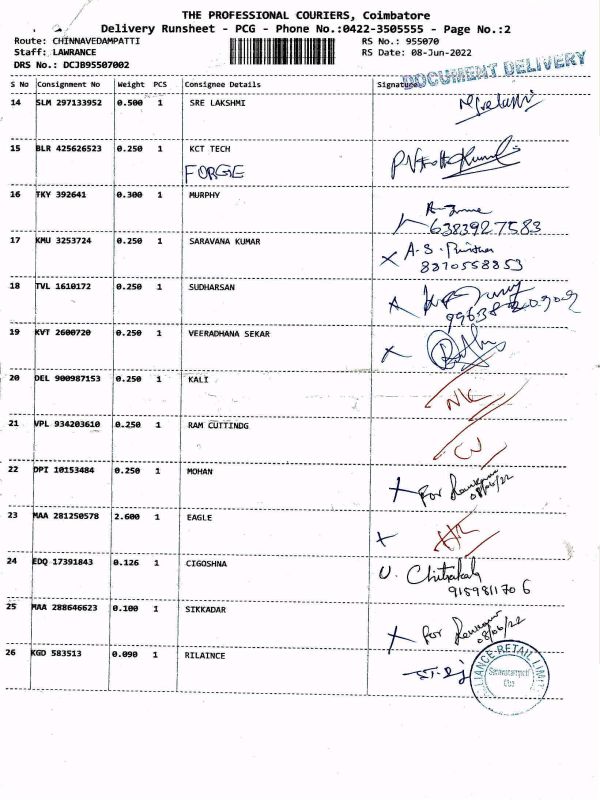 THE PROFESSIONAL COURIERS, Coimbatore
Delivery Runsheet - PCG - Phone No.:0422-3505555 - Page No.:2
Route: CHINNAVEDAMPATTI RS No.: 955070
Staff: LAWRANCE RS Date: 08-Jun-2022
DRS No.: DCJB95507002
DOCUMENT DELIVERY
S No Consignment No Weight PCS Consignee Details Signature
14 SLM 297133952 0.500 1 SRE LAKSHMI
15 BLR 425626523 0.250 1 KCT TECH
FORGE
16 TKY 392641 0.300 1 MURPHY
6383927583
17 KMU 3253724 0.250 1 SARAVANA KUMAR
A.S.
8870558853
18 TVL 1610172 0.250 1 SUDHARSAN
19 KVT 2600720 0.250 1 VEERADHANA SEKAR
20 DEL 900987153 0.250 1 KALI
NK
21 VPL 934203610 0.250 1 RAM CUTTINDG
22 DPI 10153484 0.250 1 MOHAN
For
08/06/22
23 MAA 281250578 2.600 1 EAGLE
24 EDQ 17391843 0.126 1 CIGOSHNA
U. Chitrakala
9159811706
25 MAA 288646623 0.100 1 SIKKADAR
For
08/06/22
26 KGD 583513 0.090 1 RILAINCE